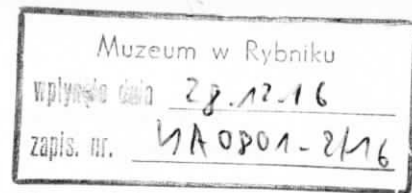 Muzeum w Rybniku
wpłynęło dnia 28.12.16
zapis. nr. MA0801-2/16